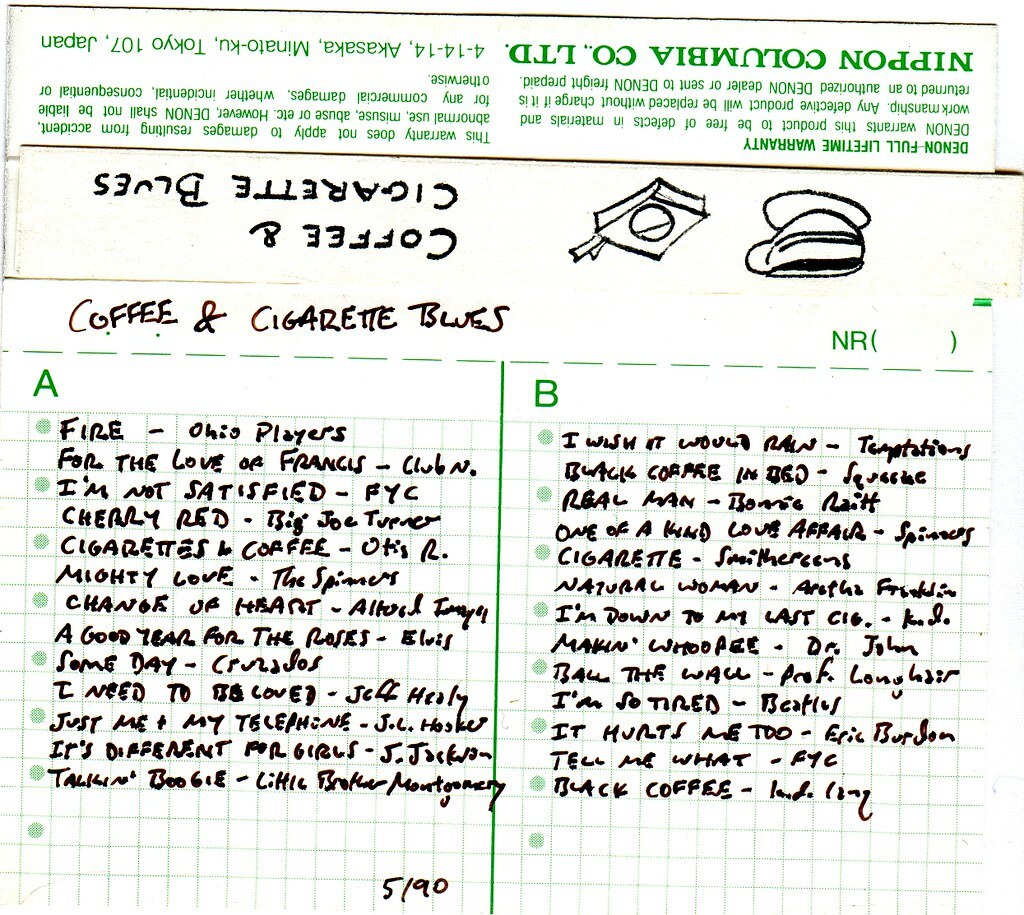 4-14-14, Akasaka, Minato-ku, Tokyo 107, Japan
NIPPON COLUMBIA CO., LTD.
DENON FULL LIFETIME WARRANTY
DENON warrants this product to be free of defects in materials and
workmanship. Any defective product will be replaced without charge if it is
returned to an authorized DENON dealer or sent to DENON freight prepaid.
This warranty does not apply to damages resulting from accident,
abnormal use, misuse, abuse or etc. However, DENON shall not be liable
for any commercial damages, whether incidential, consequential or
otherwise.
COFFEE &
CIGARETTE BLUES
COFFEE & CIGARETTE BLUES
NR( )
A
FIRE - Ohio Players
FOR THE LOVE OF FRANCIS - Club N.
I'M NOT SATISFIED - FYC
CHERRY RED - Big Joe Turner
CIGARETTES & COFFEE - Otis R.
MIGHTY LOVE - The Spinners
CHANGE OF HEART -
A GOOD YEAR FOR THE ROSES - Elvis
SOME DAY - Cruzados
I NEED TO BE LOVED - Jeff Healy
JUST ME + MY TELEPHONE - J.L. Hooker
IT'S DIFFERENT FOR GIRLS - J. Jackson
TALKIN' BOOGIE - Little Brother Montgomery
B
I WISH IT WOULD RAIN - Temptations
BLACK COFFEE IN BED - Squeeze
REAL MAN - Bonnie Raitt
ONE OF A KIND LOVE AFFAIR - Spinners
CIGARETTE - Smithereens
NATURAL WOMAN - Aretha Franklin
I'M DOWN TO MY LAST CIG. - k.d.
MAKIN' WHOOPEE - Dr. John
BALL THE WALL - Prof. Longhair
I'M SO TIRED - Beatles
IT HURTS ME TOO - Eric Burdon
TELL ME WHAT - FYC
BLACK COFFEE - k.d. lang
5/90